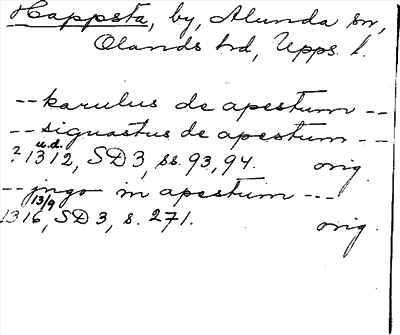 Happsta, by, Alunda sn,
Olands hd, Upps. l.
-- karulus de apestum --
-- signastus de apestum --
? u.d. 1312, SD 3, ss. 93, 94. orig.
-- jngo in apestum ---
13/9 1316, SD 3, s. 271. orig.